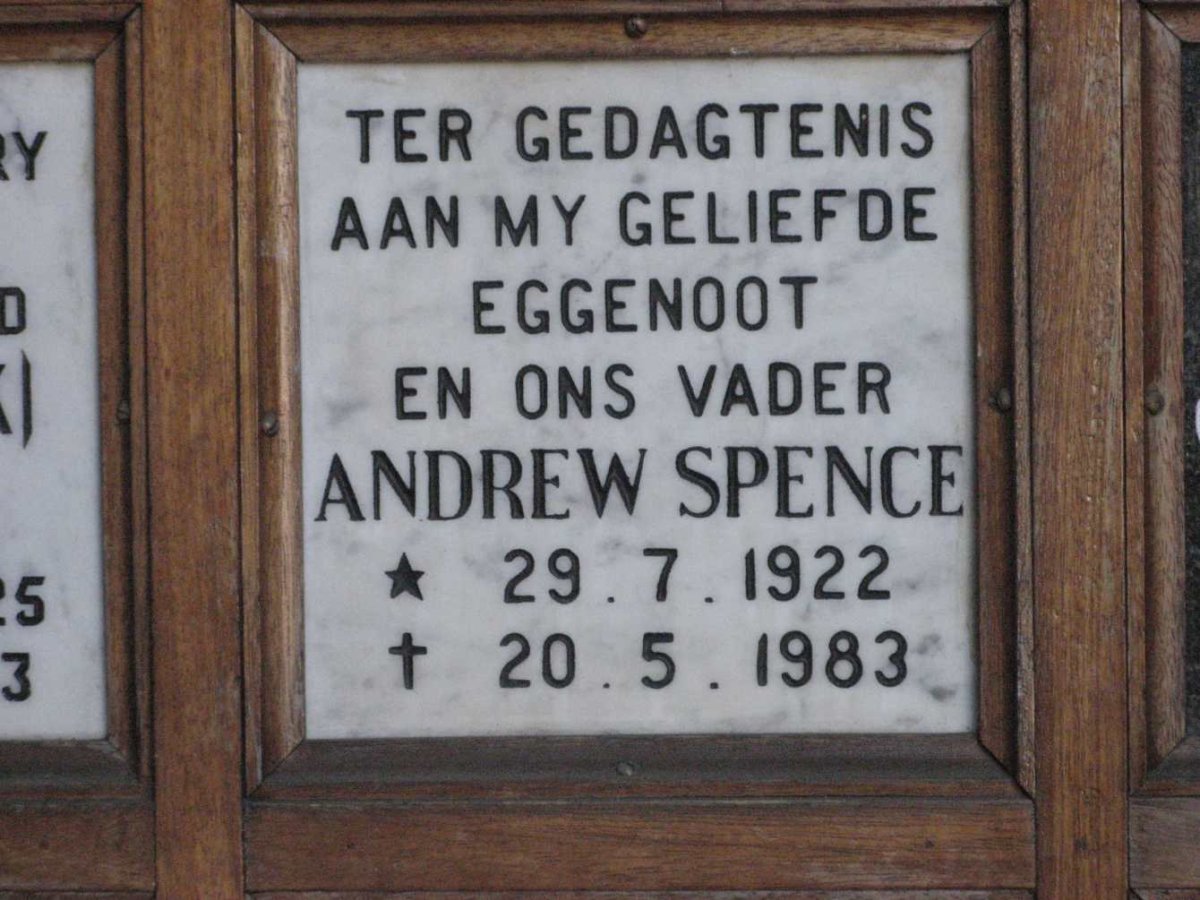 TER GEDAGTENIS
AAN MY GELIEFDE
EGGENOOT
EN ONS VADER
ANDREW SPENCE
★ 29.7.1922
† 20.5.1983